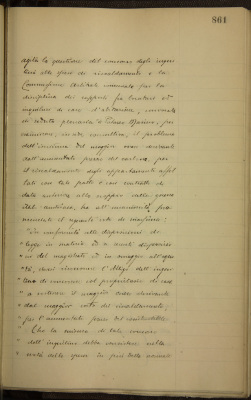 861
agita la questione del concorso degli inqui-
lini alle spese di riscaldamento e la
Commissione Arbitrale comunale per la
disciplina dei rapporti fra locatori ed
inquilini di case d'abitazione,
in seduta plenaria a Palazzo Marino, per
esaminare, in via consultiva, il problema
dell'incidenza del maggior onere derivante
dall'aumentato prezzo del carbone, per
il riscaldamento degli appartamenti affit-
tati con tale patto e con contratti di
data anteriore allo scoppio della guerra
, ha all'unanimità
il seguente voto di massima:
"In conformità alle disposizioni di
"legge in materia ed a quelle
" del magistrati ed in omaggio all'equi-
"tà, devesi riconoscere l'obbligo dell'inqui-
"lino di concorrere col proprietario di casa
"a sostenere il maggior onere derivante
"dal maggior costo del riscaldamento,
"per l'aumentato prezzo del combustibile.
Che la misura di tale concorso
dell'inquilino debba consistere nella
metà della spesa in più della normale